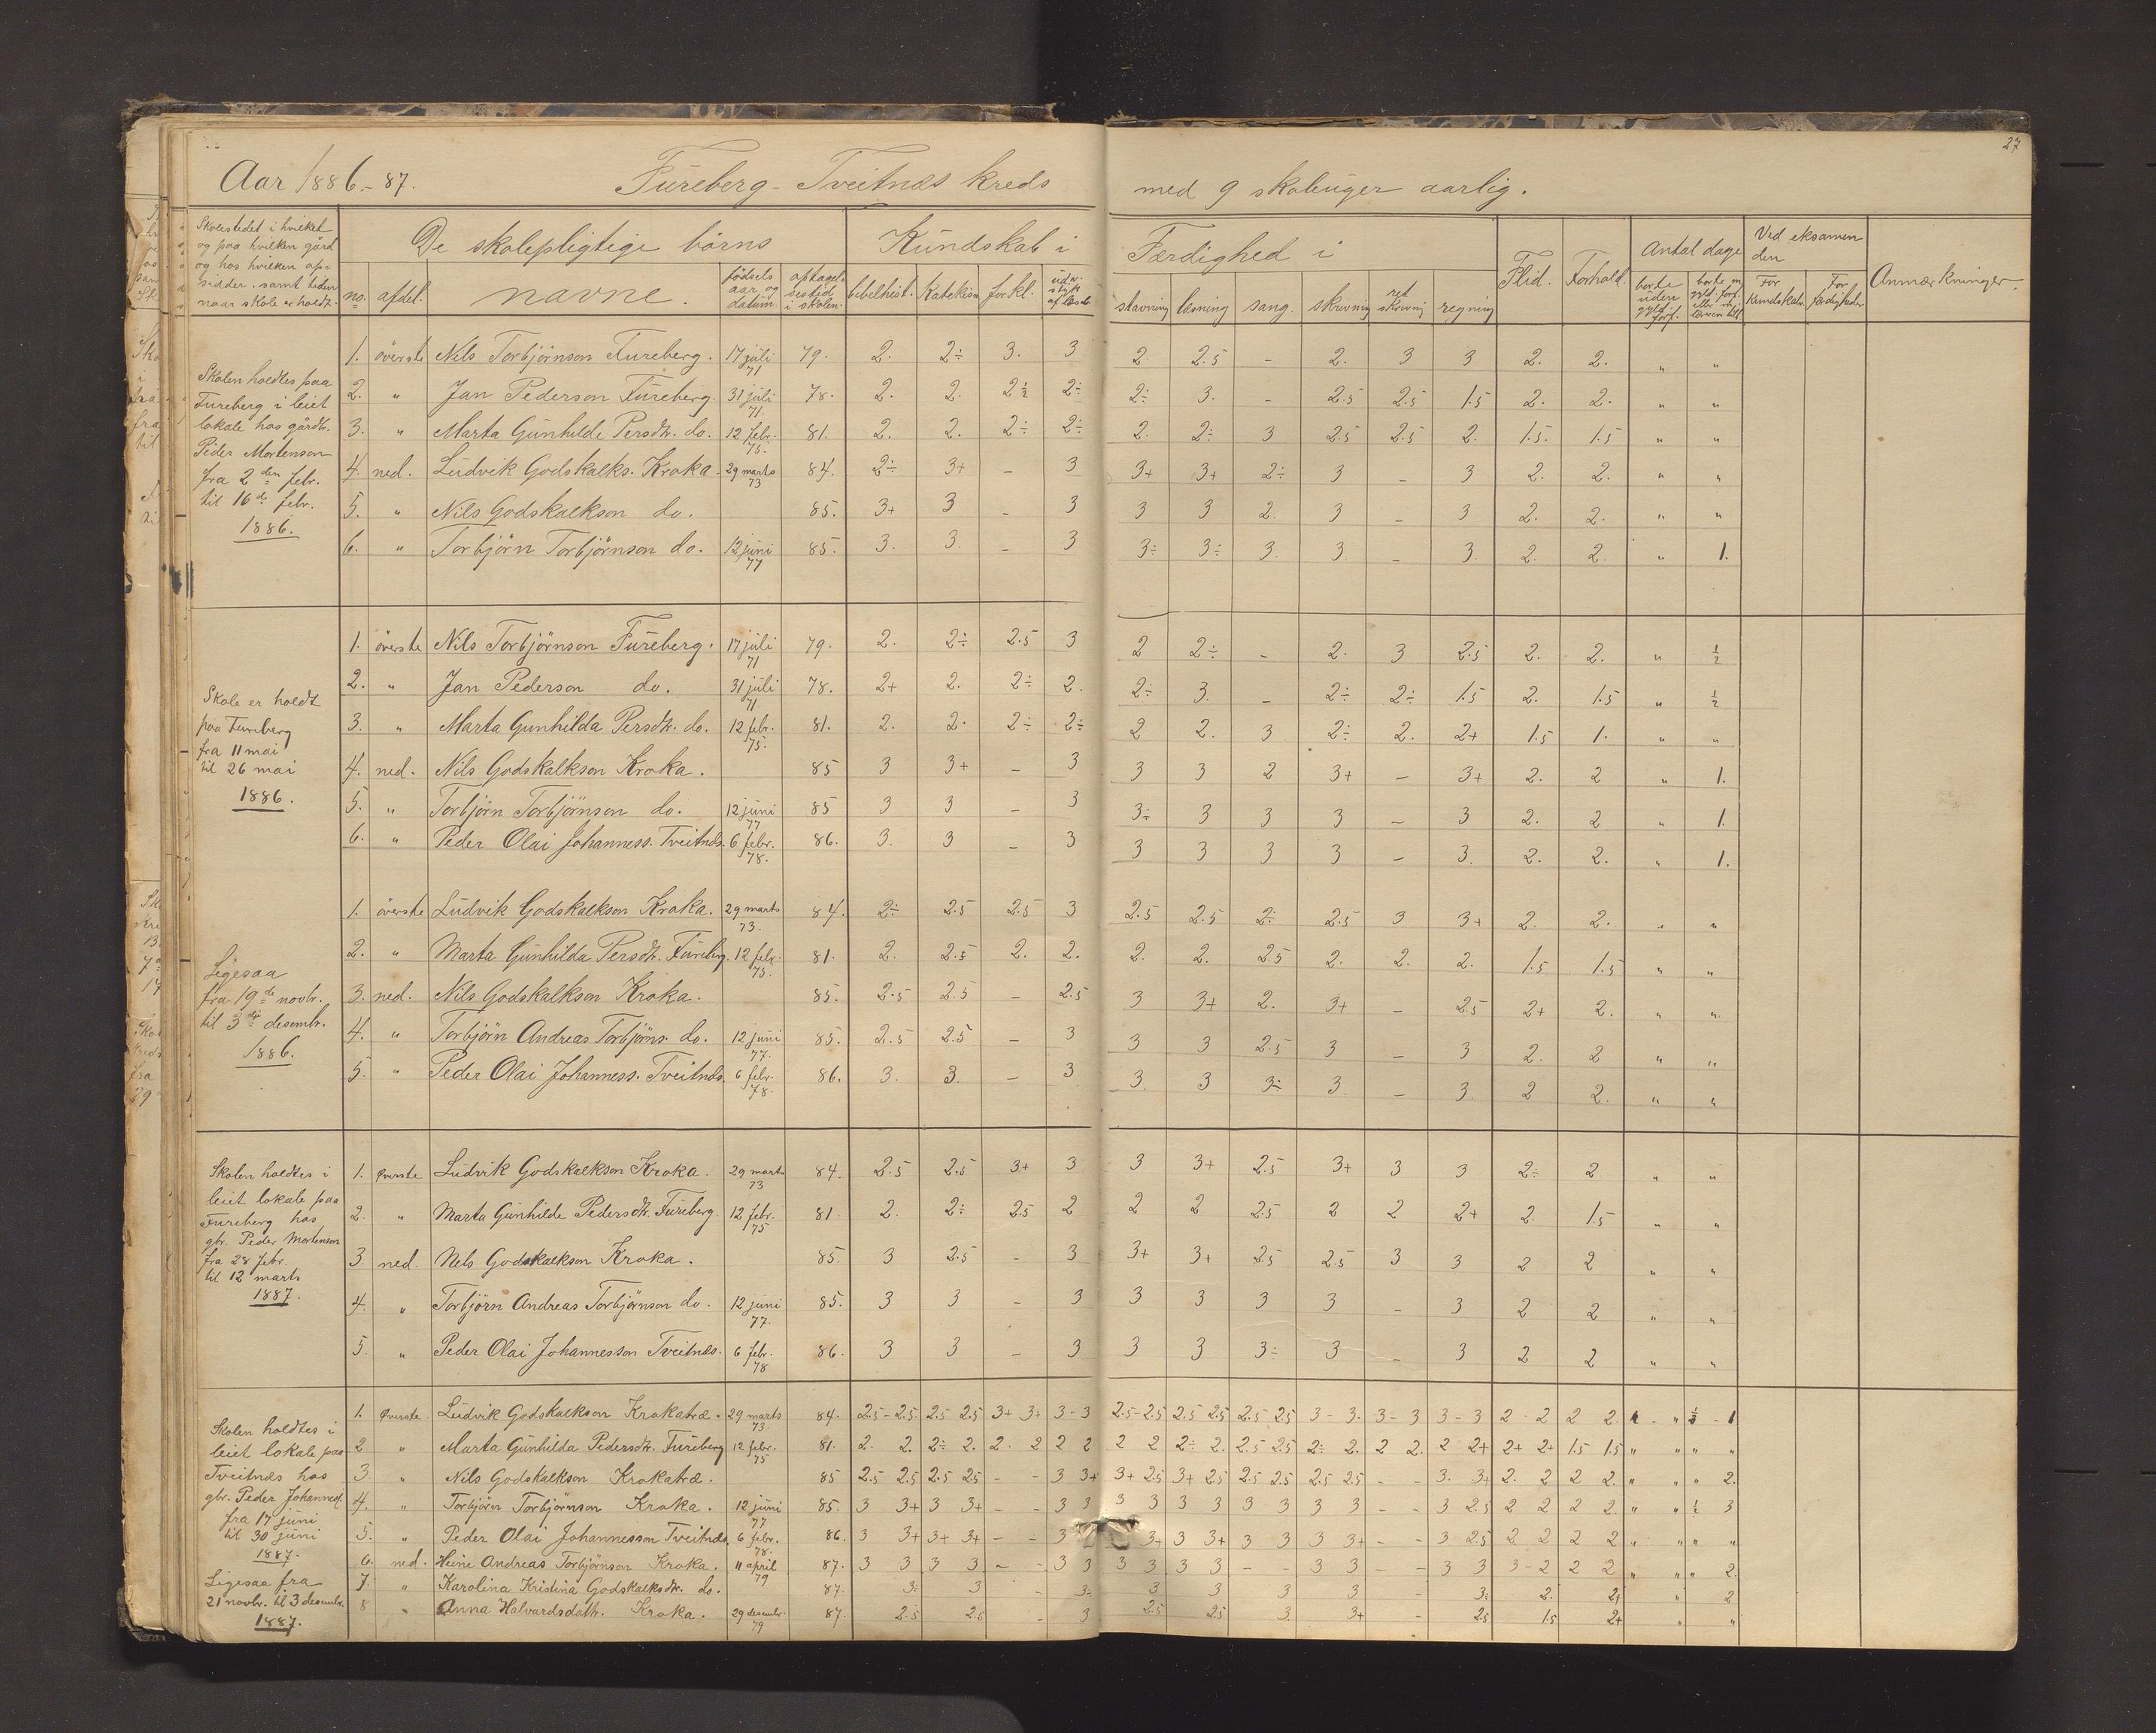 27
Aar 1886-87. Fureberg-Tveitnæs kreds med 9 skoleuger aarlig.
Skolestedet i hvilket
og paa hvilken gård
og hos hvilken op-
sidder, samt tiden
naar skole er holdt.
De skolepligtige börns Kundskab i Færdighed i Flid. Forhold. Antal dage Ved eksamen den Anmærkninger.
no. afdel. navne. födsels aar og datum optagel- sestid i skolen. bibelhist. Katekism. forkl. stavning læsning sang. skrivning ret skrivning regning borte uden gyld. forf. For Kundskab. For færdigheder
Skolen holdtes paa
Fureberg i leiet
lokale hos gårdb.
Peder Mortenson
fra 2den febr.
til 16de febr.
1886.
1. överste Nils Torbjörnson Fureberg. 17 juli 71 79. 2. 2÷ 3. 3 2 2.5 - 2. 3 3 2. 2. " "
2. " Jan Pederson Fureberg. 31 juli 71. 78. 2. 2. 2÷ 2÷ 2÷ 3. - 2.5 2.5 1.5 2. 2. " "
3. " Marta Gunhilde Persdtr. do. 12 febr. 75. 81. 2. 2. 2÷ 2÷ 2. 2÷ 3 2.5 2.5 2. 1.5. 1.5 " "
4. ned. Ludvik Godskalks. Kroka. 29 marts 73 84. 2÷ 3+ - 3 3+ 3+ 2÷ 3 - 3 2. 2. " "
5. " Nils Godskalkson do. 85. 3+ 3 - 3 3 3 2. 3 - 3 2. 2. " "
6. " Torbjörn Torbjörnson do. 12 juni 77 85. 3. 3. - 3 3÷ 3÷ 3. 3 - 3. 2. 2. " 1.
Skole er holdt
paa Fureberg
fra 11 mai
til 26 mai
1886.
1. överste Nils Torbjörnson Fureberg. 17 juli 71 79. 2. 2÷ 2.5 3 2 2÷ - 2. 3 2.5 2. 2. " ½
2. " Jan Pederson do. 31 juli 71 78. 2+ 2. 2÷ 2. 2÷ 3. - 2÷ 2÷ 1.5 2. 1.5 " ½
3. " Marta Gunhilda Persdtr. do. 12 febr. 75. 81. 2. 2. 2÷ 2÷ 2 2. 3 2÷ 2. 2+ 1.5 1. " "
4. ned. Nils Godskalkson Kroka. 85 3 3+ - 3 3 3 2 3+ - 3+ 2. 2 " 1.
5. " Torbjörn Torbjörnson do. 12 juni 77 85 3 3 - 3 3÷ 3 3 3 - 3 2. 2 " 1.
6. " Peder Olai Johanness. Tveitnæs. 6 febr. 78. 86. 3. 3 - 3 3 3 3 3 - 3. 2. 2. " 1.
Ligesaa
fra 19de novbr.
til 3die desembr.
1886.
1. överste Ludvik Godskalkson Kroka. 29 marts 73. 84. 2÷ 2.5 2.5 3 2.5 2.5 2÷ 2.5 3 3+ 2. 2. " "
2. " Marta Gunhilda Persdtr. Fureberg. 12 febr. 75. 81. 2. 2.5 2. 2. 2. 2. 2.5 2. 2. 2. 1.5 1.5 " "
3. ned. Nils Godskalkson Kroka. 85. 2.5 2.5 - 2.5 3 3+ 2. 3+ - 2.5 2+ 2. " "
4. " Torbjörn Andreas Torbjörns. do. 12 juni 77. 85. 2.5 2.5 - 3 3 3 2.5 3 - 3 2. 2 " "
5. " Peder Olai Johanness. Tveitnæs. 6 febr. 78. 86. 3. 3. - 3 3. 3 3÷ 3. - 3. 2 2. " "
Skolen holdtes i
leiet lokale paa
Fureberg hos
gbr. Peder Mortenson
fra 28 febr.
til 12 marts
1887.
1. Øverste Ludvik Godskalkson Kroka. 29 marts 73 84. 2.5 2.5 3+ 3 3 3+ 2.5 3+ 3 3 2÷ 2 " "
2. " Marta Gunhilde Pedersdtr. Fureberg. 12 febr. 75 81. 2. 2÷ 2.5 2 2 2 2.5 2 2 2+ 2 1.5 " "
3. ned. Nils Godskalkson Kroka. 85. 3 2.5 - 3 3+ 3+ 2.5 2.5 3 3 2 2 " "
4. " Torbjörn Andreas Torbjörnson do. 12 juni 77. 85. 3 3 - 3 3 3 3 3 - 3 2 2 " "
5. " Peder Olai Johannesson Tveitnæs. 6 febr. 78 86. 3 3 - 3 3 3 3÷ 3 - 3 2 2 " "
Skolen holdtes i
leiet lokale paa
Tveitnæs hos
gbr. Peder Johannes.
fra 17 juni
til 30 juni
1887.
Ligesaa fra
21 novbr. til 3 desembr.
1887.
1. Øverste. Ludvik Godskalkson Krokatræ. 29 marts 73. 84. 2.5-2.5 2.5 2.5 3+ 3+ 3-3 2.5-2.5 2.5 2.5 2.5 2.5 3-3. 3-3 3-3 2-2 2 2.
2 " Marta Gunhilda Pedersdtr. Fureberg 12 febr. 75 81. 2. 2. 2÷ 2. 2. 2 2 2 2 2 2÷ 2. 2.5 2.5 2÷ 2. 2 2. 2 2+ 2+ 2+ 1.5 1.5 " " " "
3. " Nils Godskalkson Krokatræ. 85 2.5 2.5 2.5 2.5 - - 3 3+ 3+ 2.5 3+ 2.5 2.5 2.5 2.5 2.5 - - 3. 3+ 2. 2 2 2. " " " 2.
4. " Torbjörn Torbjörnson Kroka. 12 juni 77 85. 3 3+ 3 3+ - - 3 3 3 3 3 3 3 3 3 3 - - 3 2.5 2 2 2 2. " " ½ 3
5. " Peder Olai Johannesson Tveitnæs. 6 febr. 78. 86. 3 3+ 3+ 3+ - - 3 3+ 3 3+ 3 3 3 3+ - - 3 2.5 2 2 2 2 " " " "
6. ned. Heine Andreas Torbjörnson Kroka. 11 april 79 87. 3 3 3 3 - - 3 3 3 3 3 3 - - 3 3 - - 3 3 3-2 2 2 " " " 2.
7. " Karolina Kristina Godskalksdtr. do. 87. 3÷ 3 - 3÷ 3 3 3 3 - 3÷ 2. 2+ " 2
8 " Anna Halvardsdattr. Kroka. 29 desembr. 79 87. 2.5 2.5 - 3 2.5 2.5 3. 3+ - 2.5 1.5 2+ " "